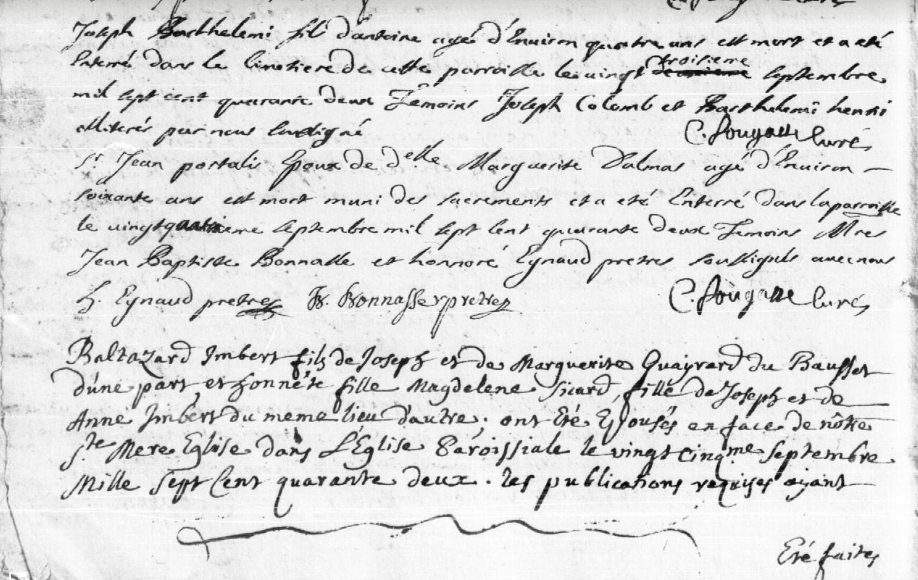 Joseph Barthelemi fils d'antoine agé d'Environ quatre ans est mort et a eté
Enterré dans le Cimetiere de cette parroisse le vingt troisieme septembre
mil sept cent quarante deux Temoins Joseph Colomb et Barthelemi henri
illiterés par nous soussigné
Curé
Sr Jean portalis Epoux de delle Marguerite Dalmas agé d'Environ
soixante ans est mort muni des sacrements et a eté Enterré dans la parroisse
le vingtquatrieme septembre mil sept cent quarante deux Temoins Mres
Jean Baptiste Bonnasse et honnoré Eynaud pretres soussignés avec nous
h. Eynaud pretre Bonnasse pretre Curé
Baltazard Imbert fils de Joseph et de Marguerite Quayrard du Bausset
d'une part et honnete fille Magdelene Sicard fille de Joseph et de
Anne Imbert du meme lieu d'autre; ont Eté Epousés en face de nôtre
Ste Mere Eglise dans L'Eglise Paroissiale le vingt cinqme septembre
Mille sept Cent quarante deux. les publications requises ayant
Eté faites